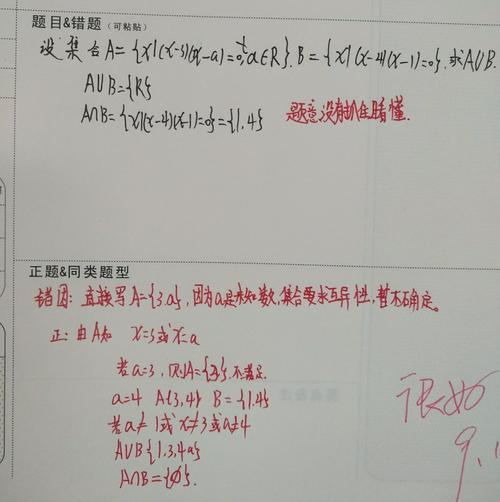 题目&错题（可粘贴）
设集合A={x|(x-3)(x-a)=0,a∈R}.B={x|(x-4)(x-1)=0},求AUB.
AUB={R}
A∩B={x|(x-4)(x-1)=0}={1.4}
题意没有抓住看懂.
正题&同类题型
错因：直接写A={3.a}，因为a是未知数,集合要求互异性,暂不确定。
正：由A知 x=3或x=a
若a=3，则A={3},不满足.
a=4 A{3,4} B={1.4}
若a≠1或x≠3或a≠4
AUB{1.3,4a}
A∩B={∅}.
很好
9.1